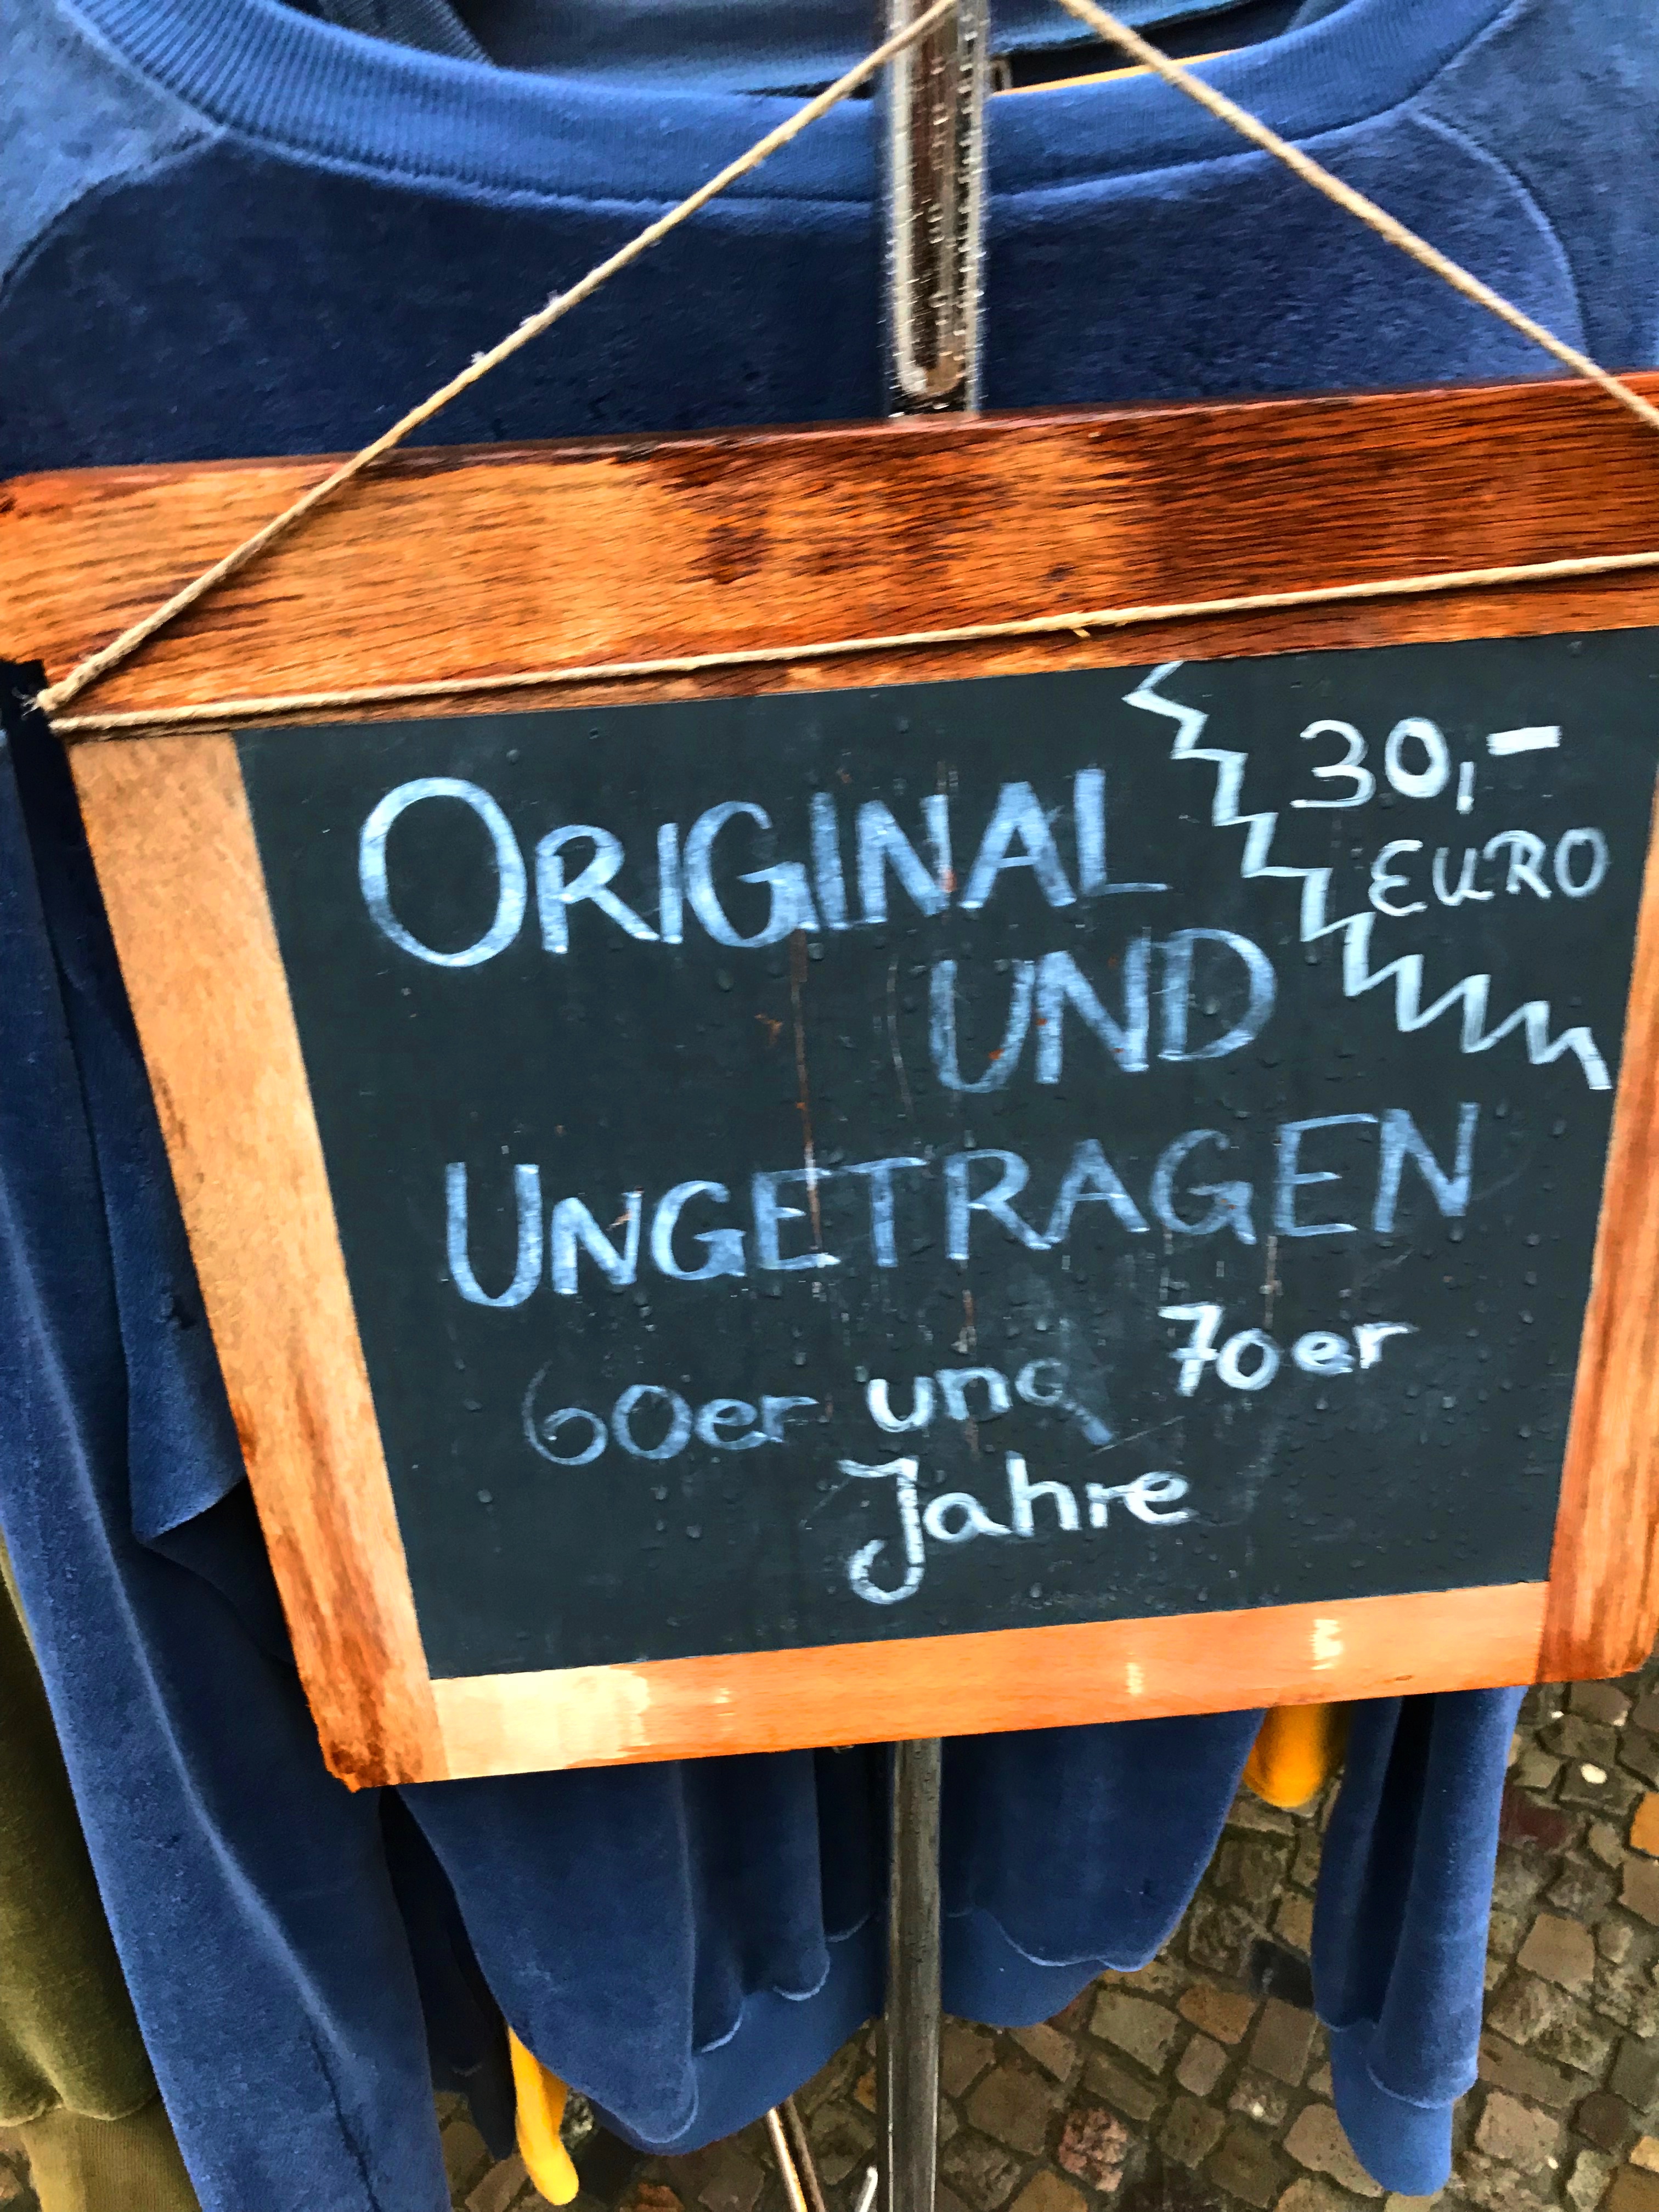 30,-
EURO
ORIGINAL
UND
UNGETRAGEN
60er und 70er
Jahre